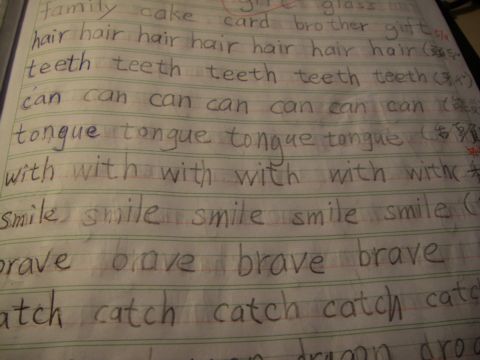 girl glass
family cake card brother gift
hair hair hair hair hair hair hair (
teeth teeth teeth teeth teeth (
can can can can can can can (
tongue tongue tongue tongue (舌頭
with with with with with with (
smile smile smile smile smile (
brave brave brave brave
catch catch catch catch catc
dragon drag